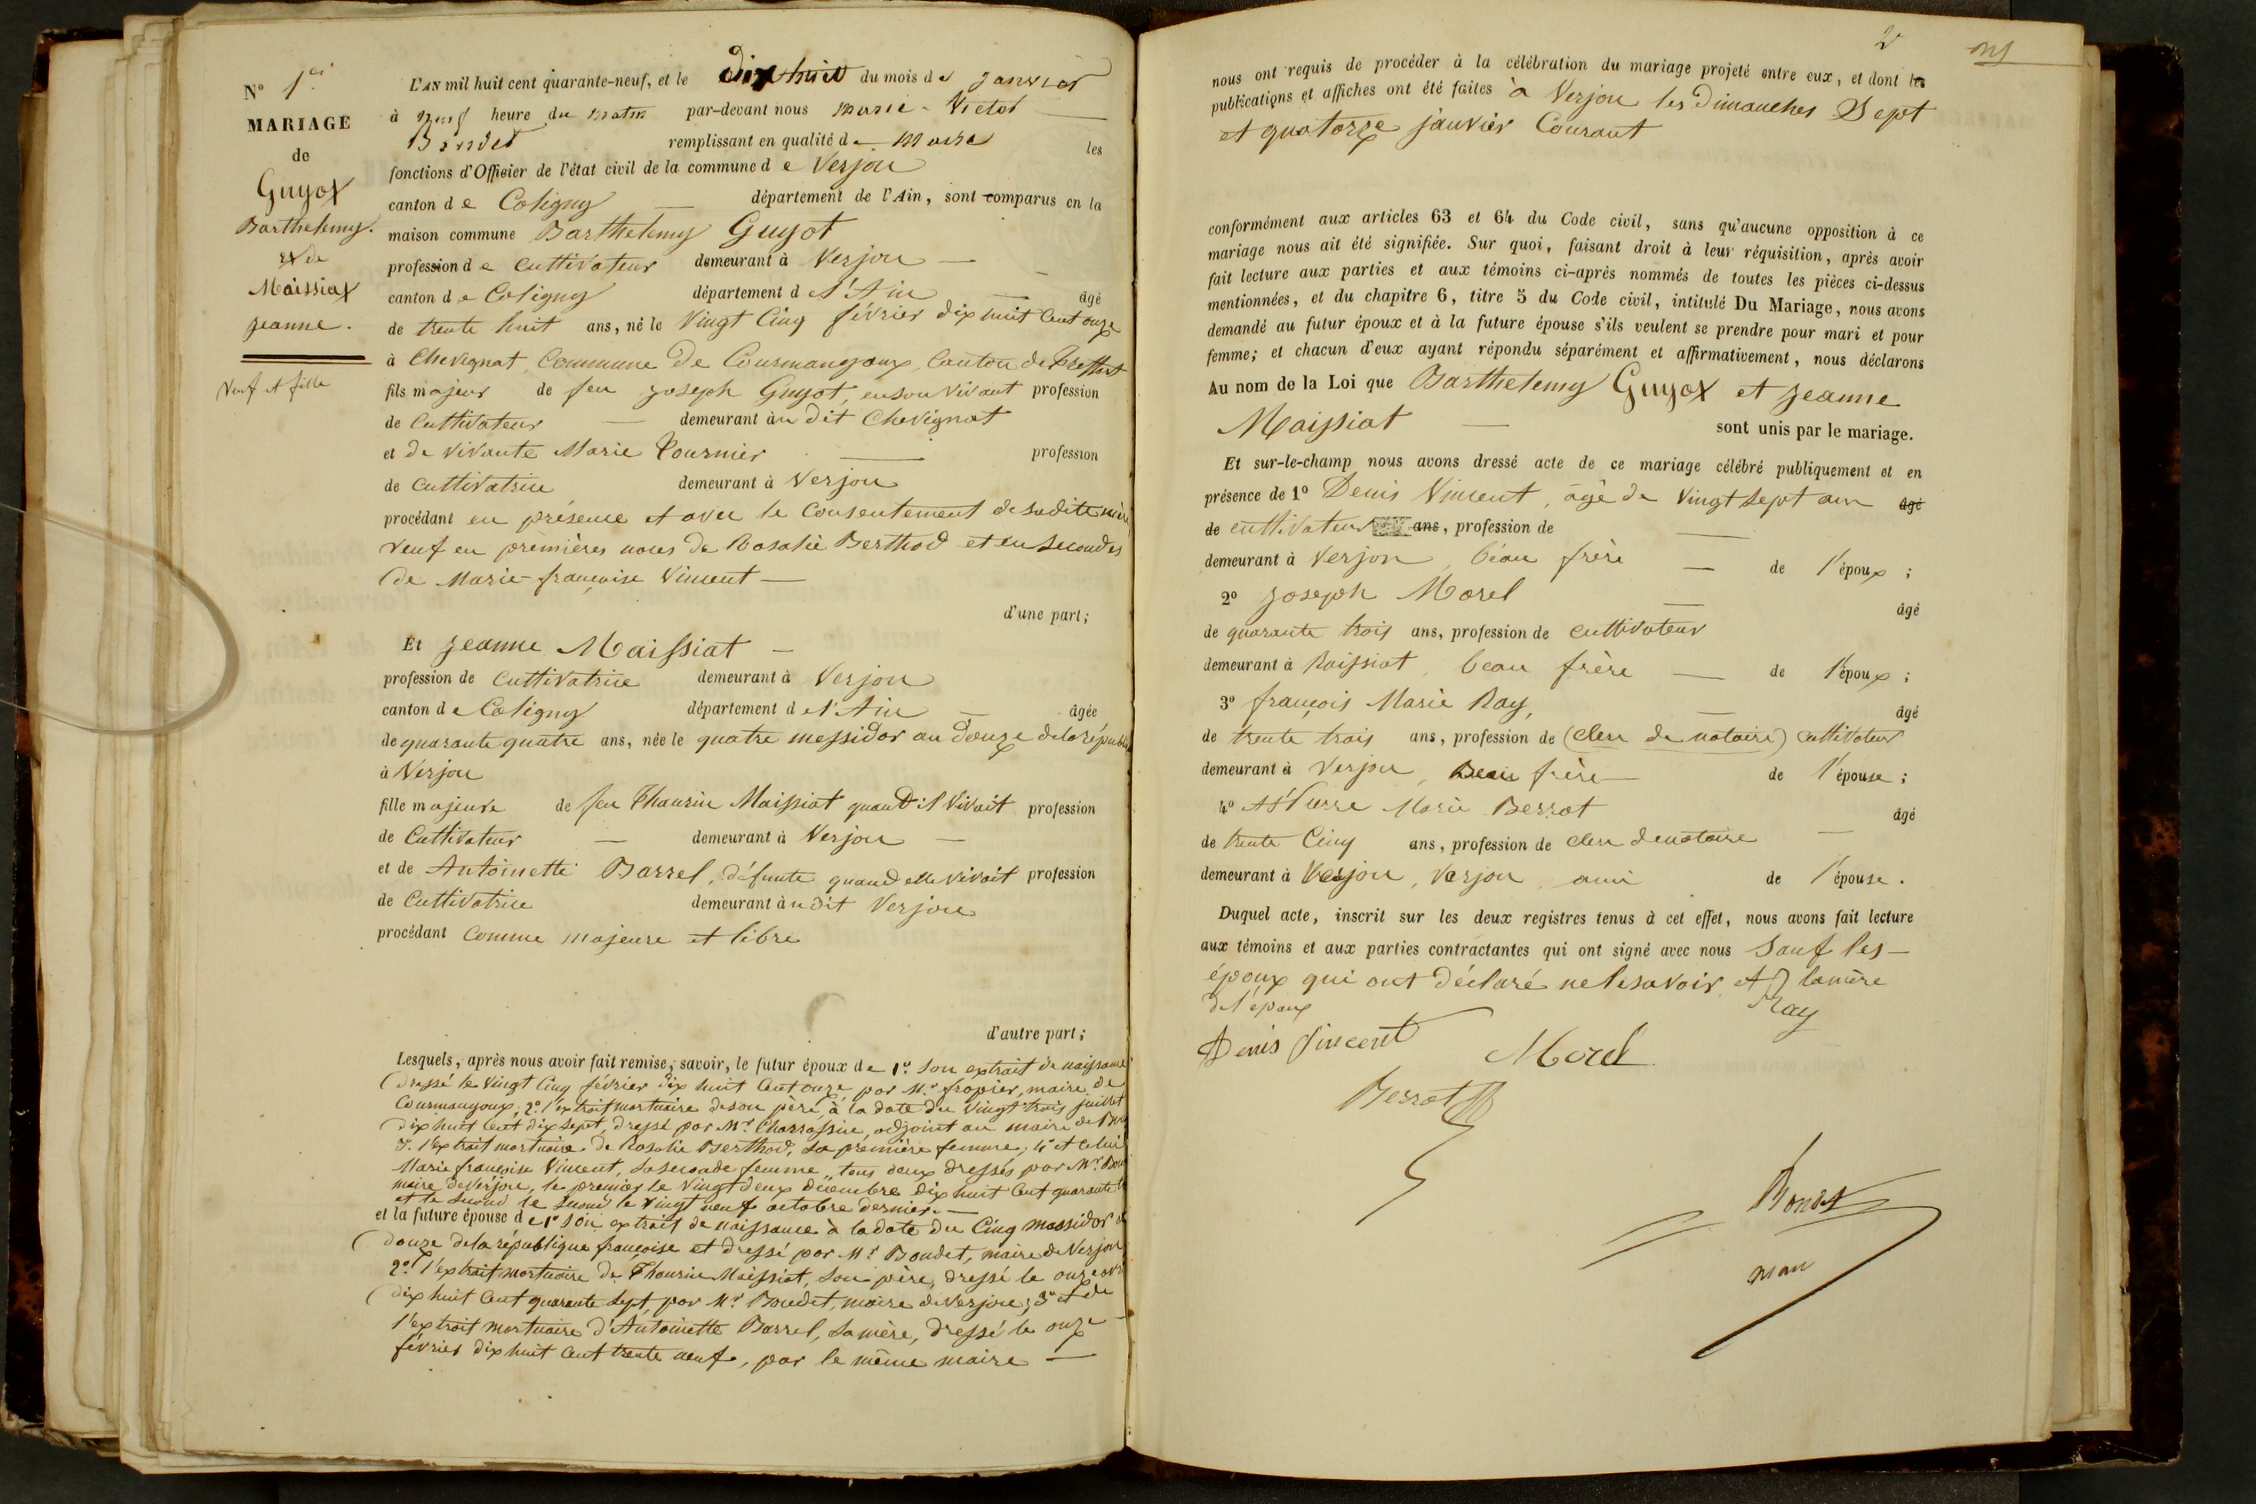 N° 1er
MARIAGE
de
Guyot
Barthelemy.
et de
Maissiat
Jeanne.
Veuf et fille
L'AN mil huit cent quarante-neuf, et le dix huit du mois de Janvier
à neuf heure du matin par-devant nous Marie-Victor
Bondet remplissant en qualité de Maire les
fonctions d'Officier de l'état civil de la commune de Verjon
canton de Coligny département de l'Ain, sont comparus en la
maison commune Barthelemy Guyot
profession de cultivateur demeurant à Verjon
canton de Coligny département de l'Ain âgé
de trente huit ans, né le vingt cinq février dix huit cent onze
à Chevignat, Commune de Courmangoux, Canton de Treffort
fils majeur de feu Joseph Guyot, en son vivant profession
de cultivateur demeurant au dit Chevignat
et de vivante Marie Fournier profession
de cultivatrice demeurant à Verjon
procédant en présence et avec le consentement de sadite mère
veuf en premières noces de Rosalie Berthod et en secondes
de Marie-françoise Vincent
d'une part;
Et Jeanne Maissiat
profession de cultivatrice demeurant à Verjon
canton de Coligny département de l'Ain âgée
de quarante quatre ans, née le quatre messidor an douze de la républi
à Verjon
fille majeure de feu Thaurin Maissiat quand il vivait profession
de Cultivateur demeurant à Verjon
et de Antoinette Barrel, défunte quand elle vivait profession
de Cultivatrice demeurant au dit Verjon
procédant comme majeure et libre
d'autre part;
Lesquels, après nous avoir fait remise, savoir, le futur époux de 1° son extrait de naissance
dressé le vingt cinq février dix huit cent onze, par Mr. fropier, maire de
Courmangoux; 2° l'extrait mortuaire de son père, à la date du vingt trois juillet
dix huit cent dix sept, dressé par Mr Charrassin, adjoint au maire de
3. l'extrait mortuaire de Rosalie Berthod, sa première femme; 4° et celui
Marie françoise Vincent, sa seconde femme, tous deux dressés par Mr.
maire de Verjon, le premier le vingt deux décembre dix huit cent quarante
et le second le second le vingt neuf octobre dernier.
et la future épouse de 1° son extrait de naissance à la date du Cinq messidor
douze de la république françoise et dressé par Mr Bondet, maire de Verjon
2° l'extrait mortuaire de Thaurin Maissiat, son père, dressé le onze
dix huit cent quarante sept, par Mr Bondet, maire de Verjon; 3° et de
l'extrait mortuaire d'Antoinette Barrel, sa mère, dressé le onze
février dix huit cent trente neuf, par le même maire
2
nous ont requis de procéder à la célébration du mariage projeté entre eux, et dont les
publications et affiches ont été faites à Verjon les dimanches Sept
et quatorze janvier Courant
conformément aux articles 63 et 64 du Code civil, sans qu'aucune opposition à ce
mariage nous ait été signifiée. Sur quoi, faisant droit à leur réquisition, après avoir
fait lecture aux parties et aux témoins ci-après nommés de toutes les pièces ci-dessus
mentionnées, et du chapitre 6, titre 5 du Code civil, intitulé Du Mariage, nous avons
demandé au futur époux et à la future épouse s'ils veulent se prendre pour mari et pour
femme; et chacun d'eux ayant répondu séparément et affirmativement, nous déclarons
Au nom de la Loi que Barthelemy Guyot et Jeanne
Maissiat sont unis par le mariage.
Et sur-le-champ nous avons dressé acte de ce mariage célébré publiquement et en
présence de 1° Denis Vincent, âgé de vingt sept ans âgé
de cultivateur ans, profession de
demeurant à Verjon, beau frère de l'époux;
2° Joseph Morel âgé
de quarante trois ans, profession de cultivateur
demeurant à Roissiat, beau frère de l'époux;
3° françois Marie Ray, âgé
de trente trois ans, profession de (clerc de notaire) cultivateur
demeurant à Verjon, Beau frère de l'épouse;
4° Pierre Marie Berrot âgé
de trente Cinq ans, profession de clerc de notaire
demeurant à Verjon, Verjon ami de l'épouse.
Duquel acte, inscrit sur les deux registres tenus à cet effet, nous avons fait lecture
aux témoins et aux parties contractantes qui ont signé avec nous sauf les
époux qui ont déclaré ne le savoir et la mère
de l'époux
Ray
Denis Vincent
Morel
Berrot
Bondet